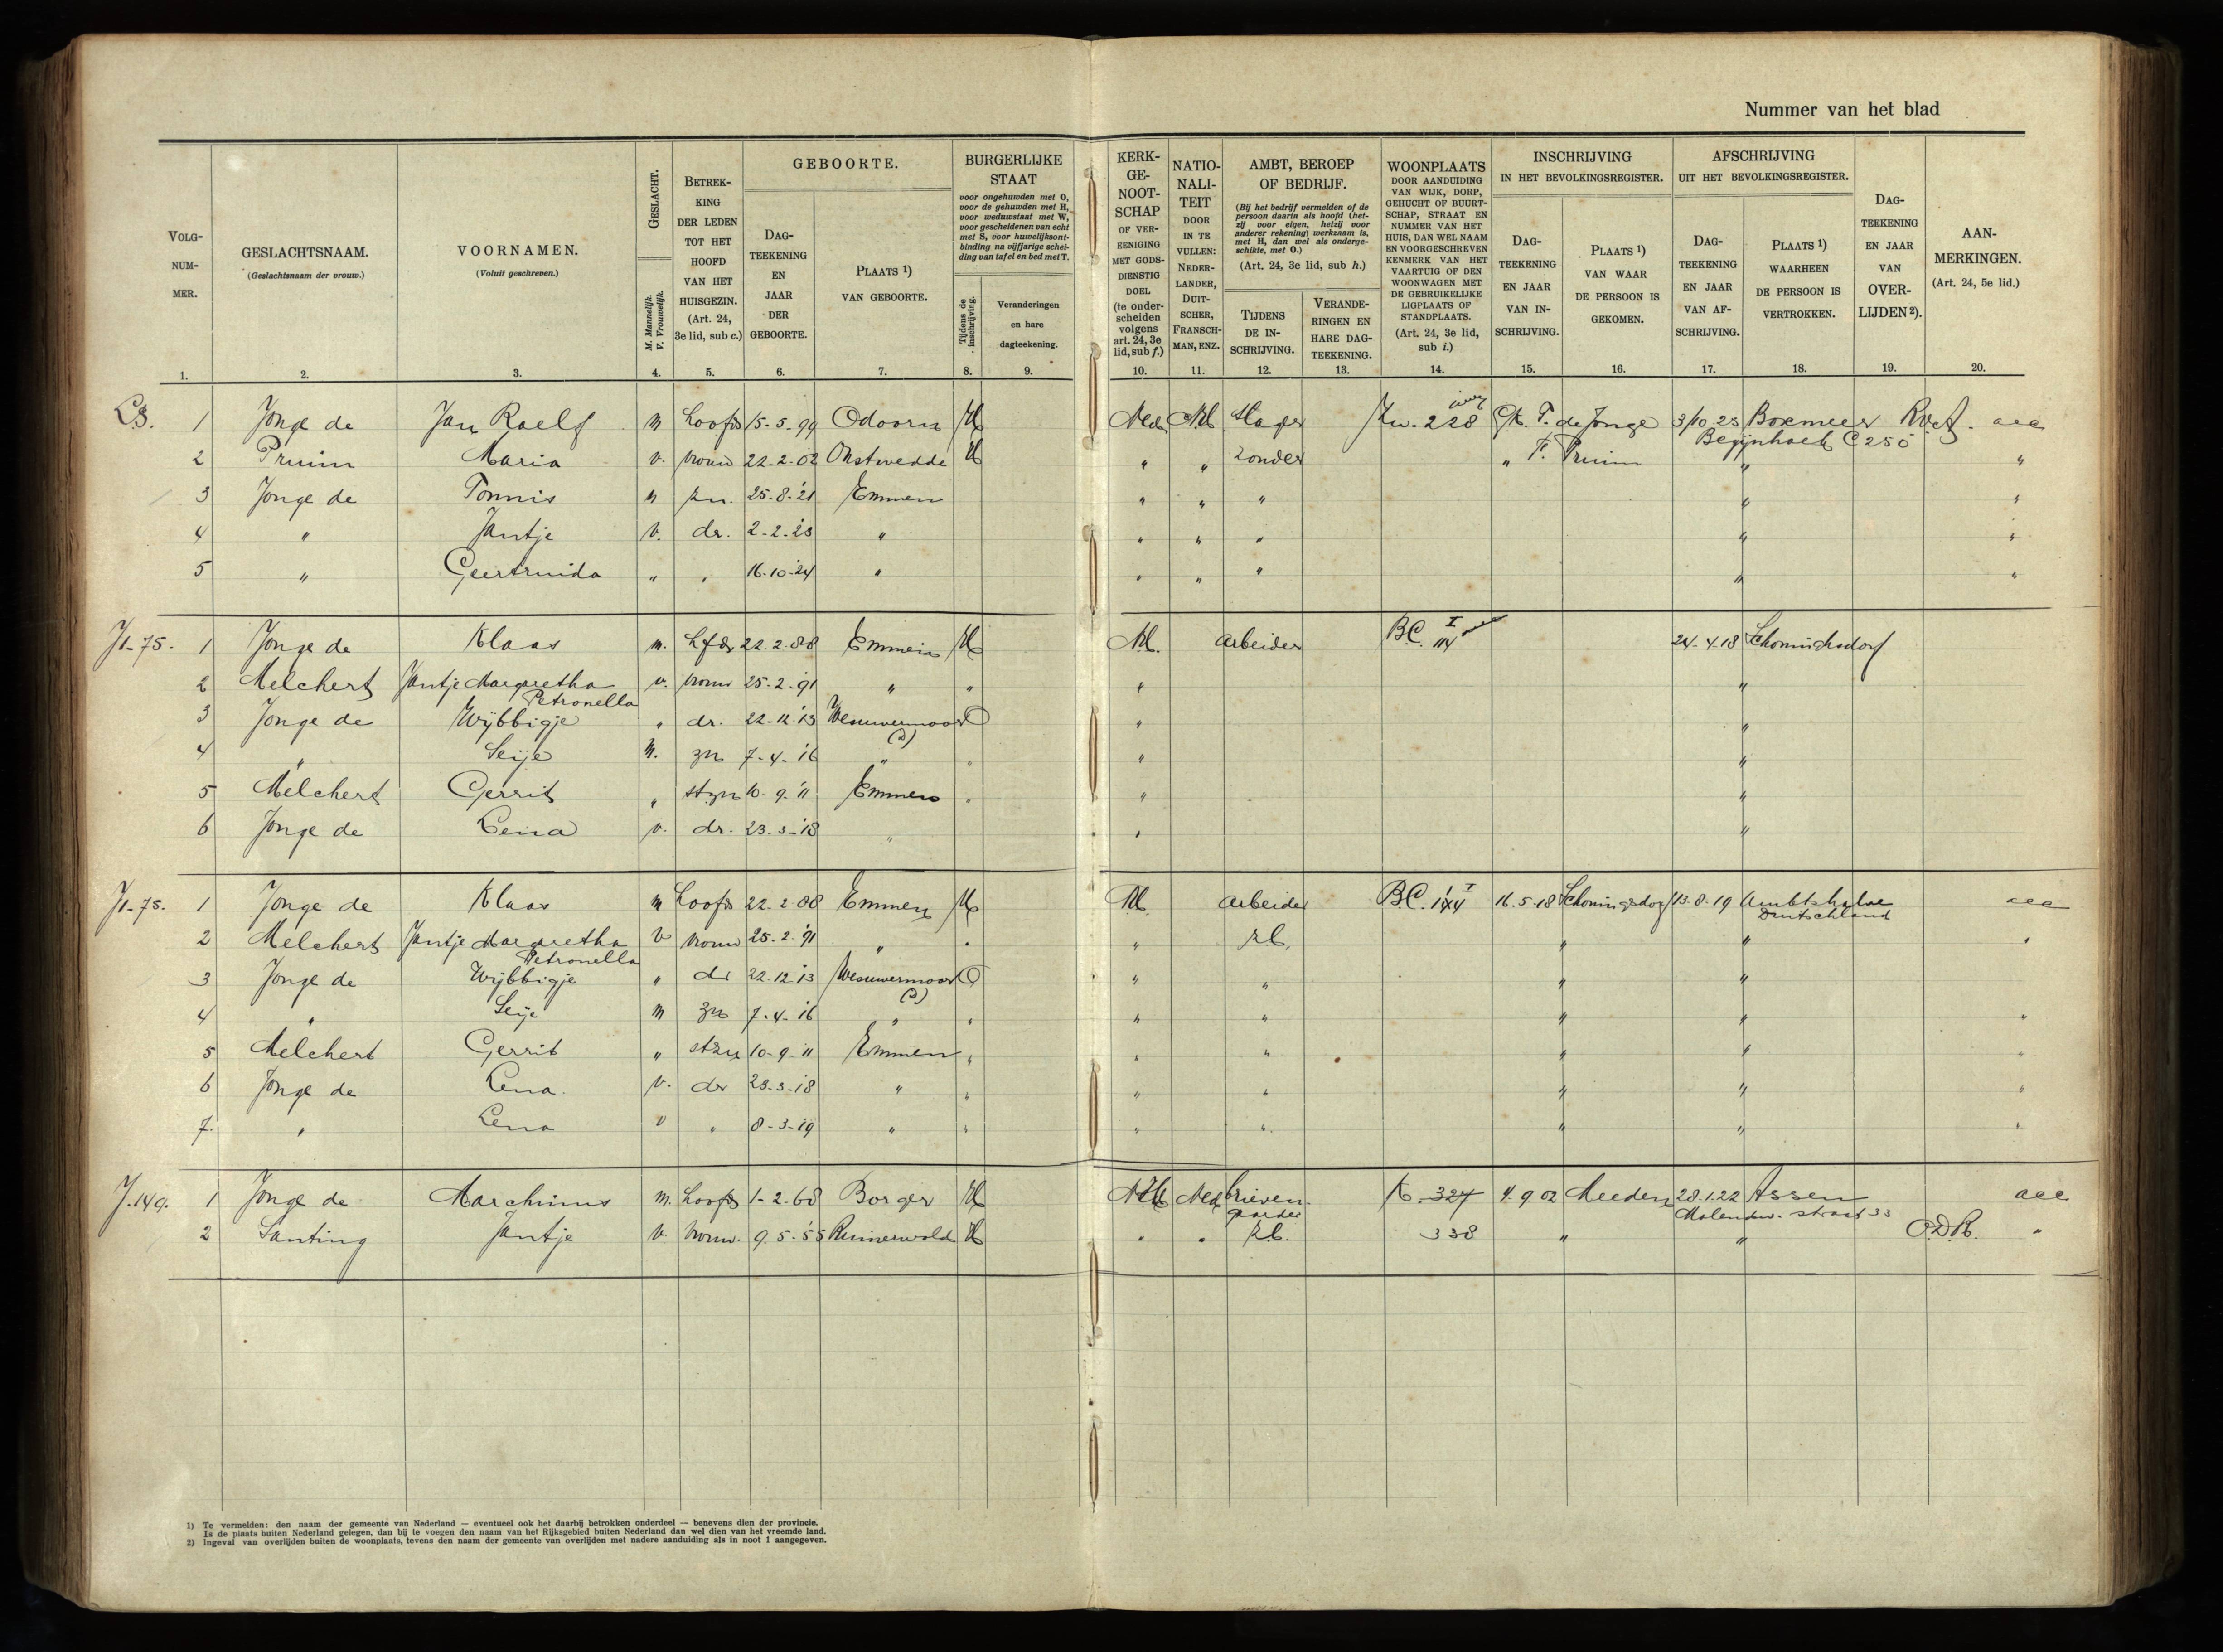 Nummer van het blad
VOLG-NUM-MER.
GESLACHTSNAAM.
(Geslachtsnaam der vrouw.)
VOORNAMEN.
(Voluit geschreven.)
GESLACHT.
M. Mannelijk. V. Vrouwelijk.
BETREK-KING DER LEDEN TOT HET HOOFD VAN HET HUISGEZIN. (Art. 24, 3e lid, sub c.)
GEBOORTE.
DAG-TEEKENING EN JAAR DER GEBOORTE.
PLAATS 1) VAN GEBOORTE.
BURGERLIJKE STAAT
voor ongehuwden met O, voor de gehuwden met H, voor weduwstaat met W, voor gescheidenen van echt met S, voor huwelijksont-binding na vijfjarige schei-ding van tafel en bed met T.
Tijdens de inschrijving.
Veranderingen en hare dagteekening.
KERK-GE-NOOT-SCHAP OF VER-EENIGING MET GODS-DIENSTIG DOEL (te onder-scheiden volgens art. 24, 3e lid, sub f.)
NATIO-NALI-TEIT DOOR IN TE VULLEN: NEDER-LANDER, DUIT-SCHER, FRANSCH-MAN, ENZ.
AMBT, BEROEP OF BEDRIJF.
(Bij het bedrijf vermelden of de persoon daarin als hoofd (het-zij voor eigen, hetzij voor anderer rekening) werkzaam is, met H, dan wel als onderge-schikte, met O.)
(Art. 24, 3e lid, sub h.)
TIJDENS DE IN-SCHRIJVING.
VERANDE-RINGEN EN HARE DAG-TEEKENING.
WOONPLAATS DOOR AANDUIDING VAN WIJK, DORP, GEHUCHT OF BUURT-SCHAP, STRAAT EN NUMMER VAN HET HUIS, DAN WEL NAAM EN VOORGESCHREVEN KENMERK VAN HET VAARTUIG OF DEN WOONWAGEN MET DE GEBRUIKELIJKE LIGPLAATS OF STANDPLAATS. (Art. 24, 3e lid, sub i.)
INSCHRIJVING IN HET BEVOLKINGSREGISTER.
DAG-TEEKENING EN JAAR VAN IN-SCHRIJVING.
PLAATS 1) VAN WAAR DE PERSOON IS GEKOMEN.
AFSCHRIJVING UIT HET BEVOLKINGSREGISTER.
DAG-TEEKENING EN JAAR VAN AF-SCHRIJVING.
PLAATS 1) WAARHEEN DE PERSOON IS VERTROKKEN.
DAG-TEEKENING EN JAAR VAN OVER-LIJDEN 2).
AAN-MERKINGEN. (Art. 24, 5e lid.)
1. 2. 3. 4. 5. 6. 7. 8. 9. 10. 11. 12. 13. 14. 15. 16. 17. 18. 19. 20.
1 Jonge de Jan Roelf m hoofd 15-5-99 Odoorn H Ned. 228 T. de Jonge 3/10 25 Boxmeer
Begijnhoek C 250
2 Pruim Maria v. vrouw 22-2-02 Onstwedde H " " zonder " T. Pruim " "
3 Jonge de Tonnis m zn. 25-8-'21 Emmen " " " " "
4 " Jantje v. dr. 2-2-'23 " " " " " "
5 " Geertruida " " 16-10-'24 " " " " " "
J1-75. 1 Jonge de Klaas m. hfd 22-2-88 Emmen H arbeider B.C. I 24-4-18
2 Melchert Jantje Margretha Petronella v. vrouw 25-2-91 " " " "
3 Jonge de Wijbbigje " dr. 22-12-'13 Wesuwermoor O " "
(D)
4 " Seije m. zn 7-4-'16 " " " "
5 Melchert Gerrit " stzn 10-9-'11 Emmen " " "
6 Jonge de Lena v. dr. 23-3-'18 " " "
J1-75. 1 Jonge de Klaas m hoofd 22-2-88 Emmen H arbeider B.C. I 16-5-18 Schoningsdorf 13-8-19 Deutschland
2 Melchert Jantje Margretha Petronella v vrouw 25-2-'91 " " " " " "
3 Jonge de Wijbbigje " dr 22-12-'13 Wesuwermoor O " " " "
(D)
4 " Seije m zn 7-4-'16 " " " " " " "
5 Melchert Gerrit " stzn 10-9-'11 Emmen " " " " " "
6 Jonge de Lena v. dr 23-3-'18 " " " " " " "
7. " Lena v " 8-3-'19 " " " " " " "
J.149. 1 Jonge de Marchinus m. hoofd 1-2-68 Borger H Ned brieven- K 327 4-9-02 Meeden 28-1-22 Assen
gaarder Molenstraat 33
2 Santing Jantje v. vrouw. 9-5-'55 Ruinerwold H " " 338 " " "
1) Te vermelden: den naam der gemeente van Nederland — eventueel ook het daarbij betrokken onderdeel — benevens dien der provincie.
Is de plaats buiten Nederland gelegen, dan bij te voegen den naam van het Rijksgebied buiten Nederland dan wel dien van het vreemde land.
2) Ingeval van overlijden buiten de woonplaats, tevens den naam der gemeente van overlijden met nadere aanduiding als in noot 1 aangegeven.